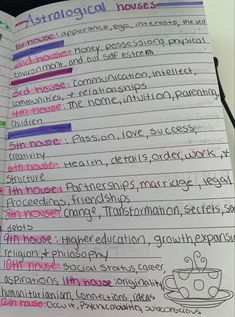 Astrological houses
1st house: apperance, ego, interests, the self
2nd house: Money, possessions, physical
environment, and our self esteem
3rd house: Communication, intellect,
communities, + relationships
4th house: The home, intuition, parenting,
children
5th house: Passion, love, success,
creativity
6th house: Health, details, order, work +
Structure
7th house: Partnerships, marriage, legal
Proceedings, friendships
8th house: Change, Transformation, Secrets,
debts
9th house: Higher education, growth,
religion + philosophy
10th house: Social Status, career,
aspirations 11th house: originality
humanitarianism, Connections, ideas
12th house: Occult, subconscious